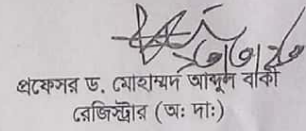 প্রফেসর ড. মোহাম্মদ আব্দুল বাকী
রেজিস্ট্রার (অঃ দাঃ)